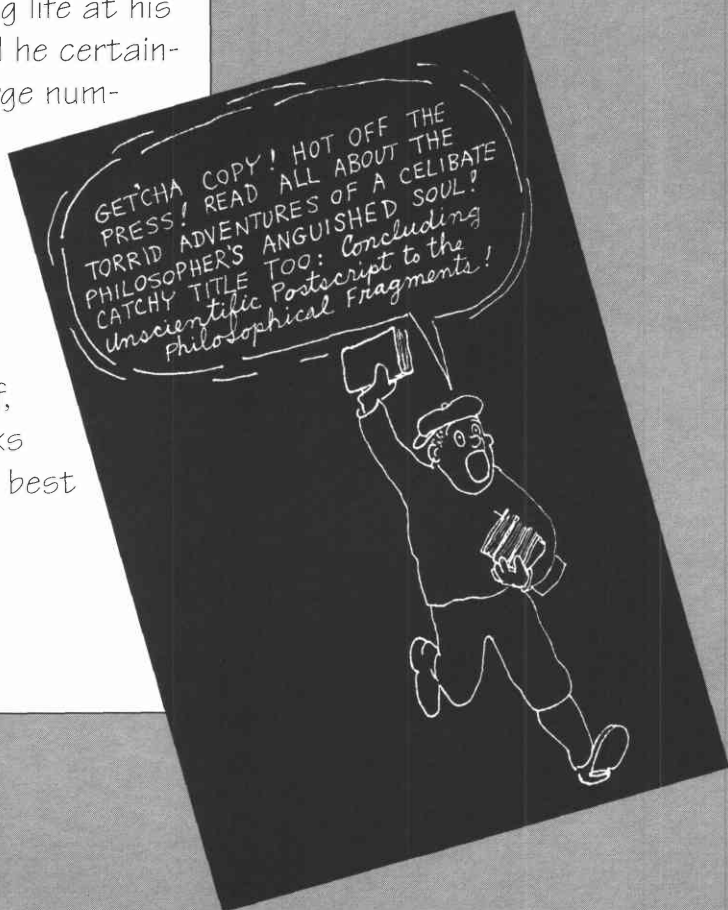 g life at his
d he certain-
rge num-
GET'CHA COPY! HOT OFF THE
PRESS! READ ALL ABOUT THE
TORRID ADVENTURES OF A CELIBATE
PHILOSOPHER'S ANGUISHED SOUL!
CATCHY TITLE TOO: Concluding
Unscientific Postscript to the
Philosophical Fragments!
f,
ks
best